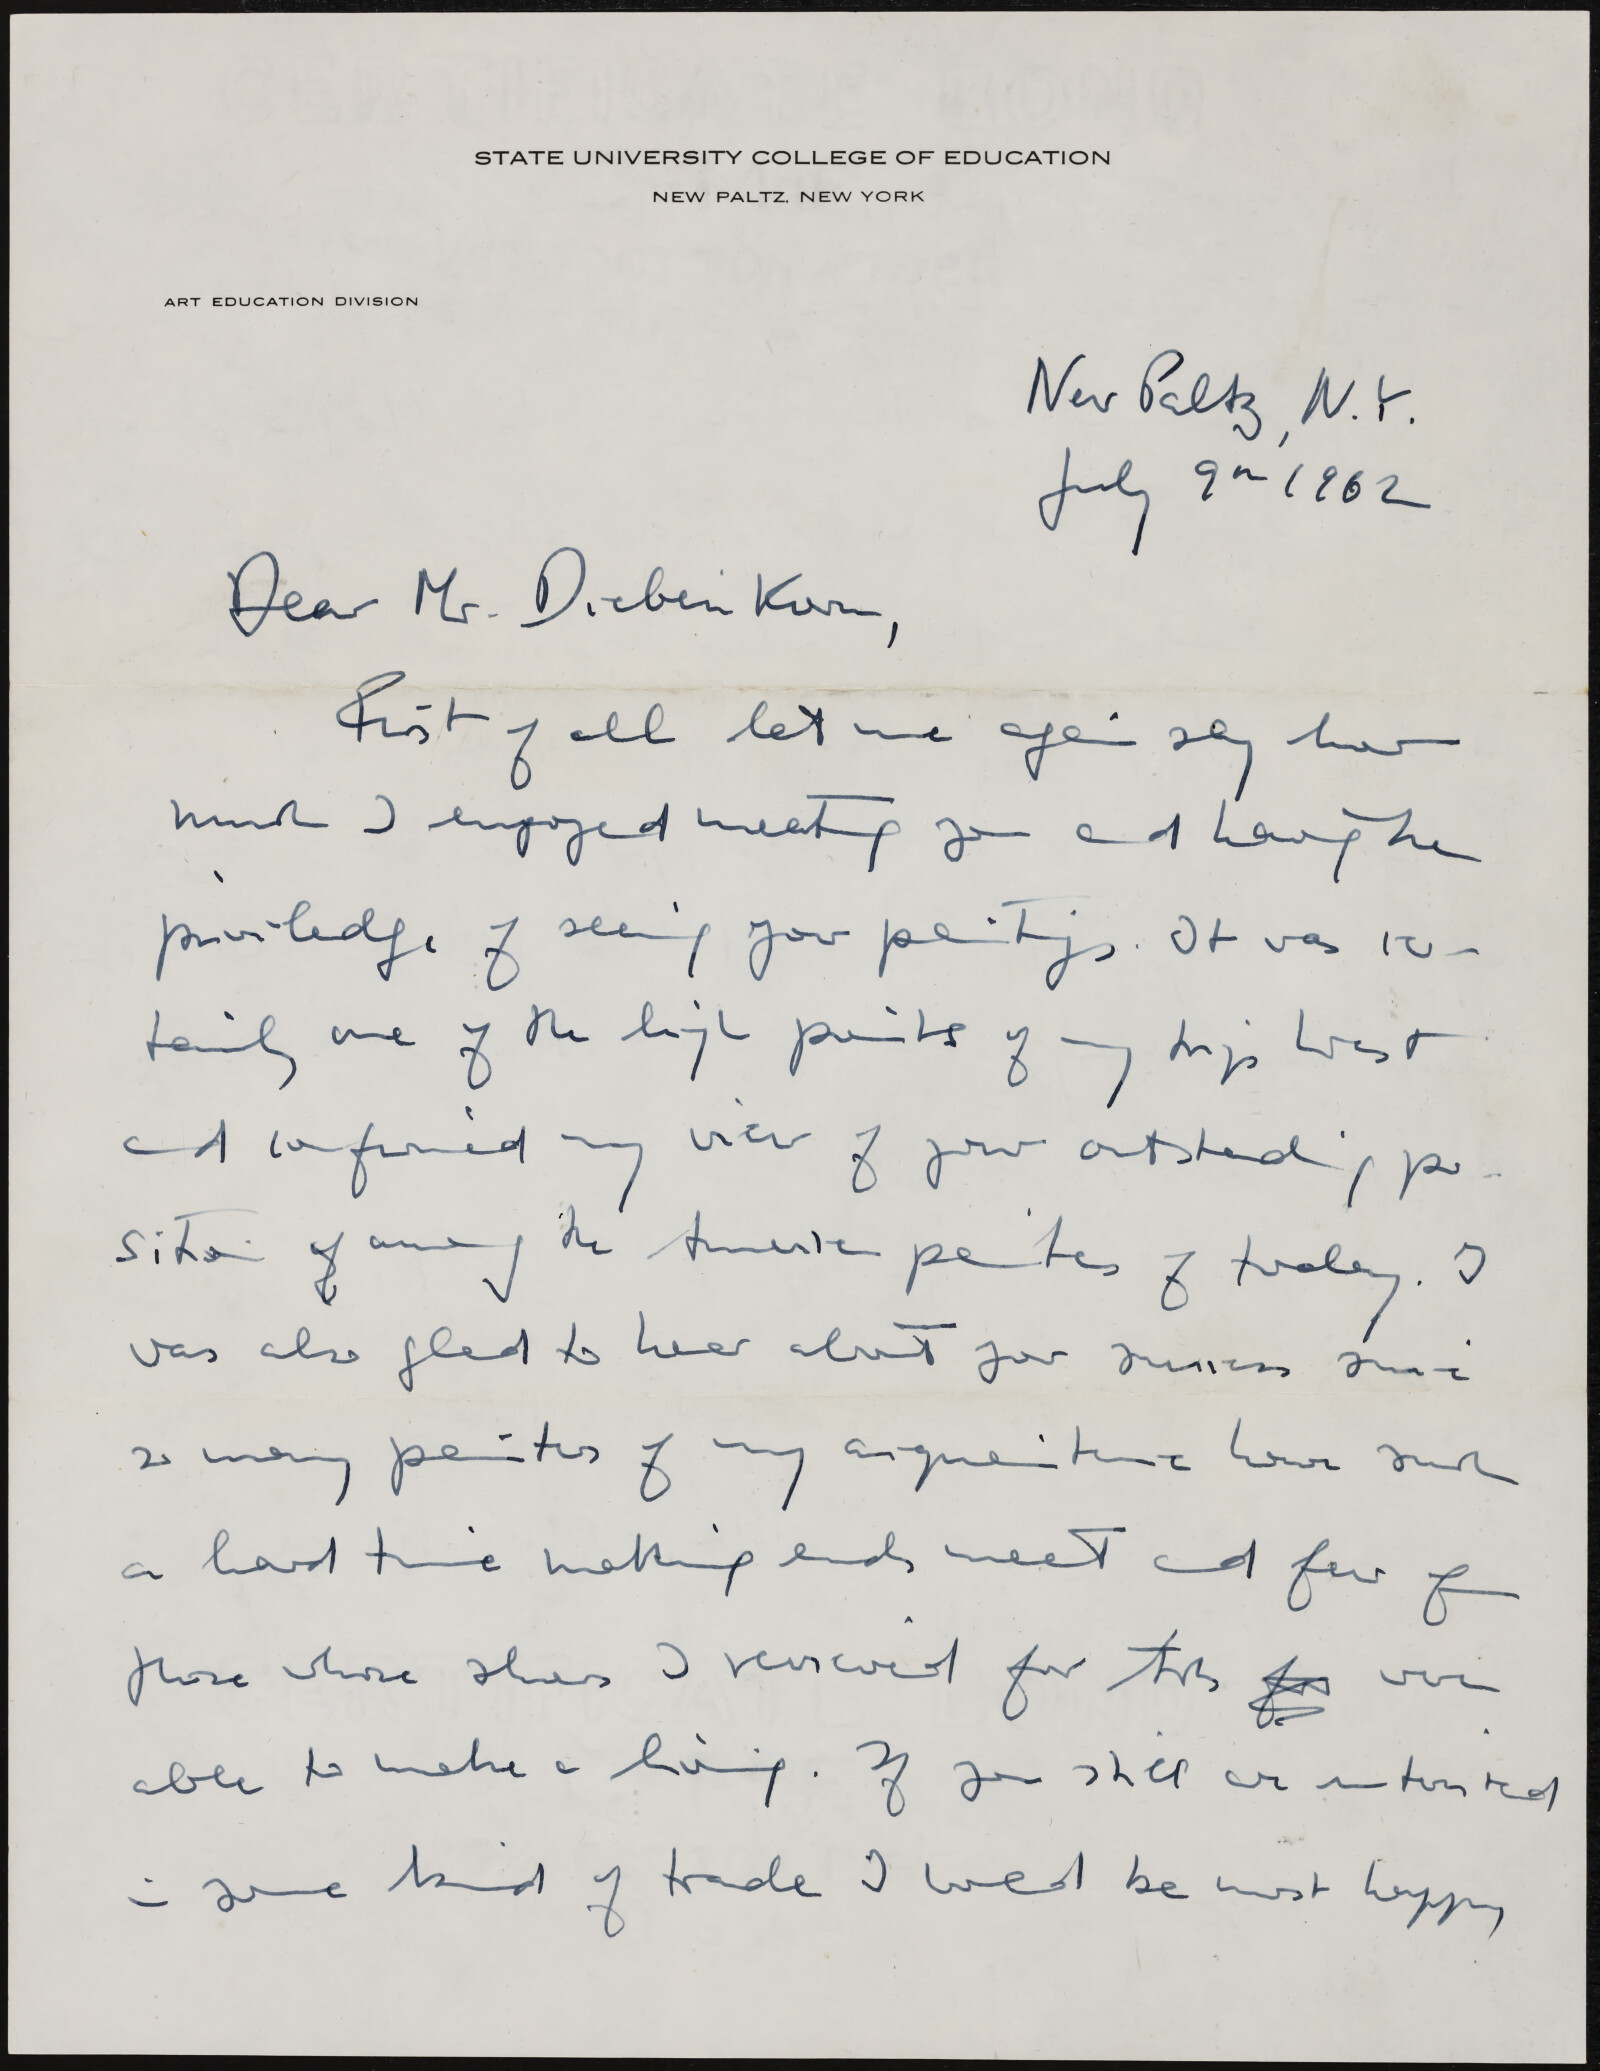 STATE UNIVERSITY COLLEGE OF EDUCATION
NEW PALTZ, NEW YORK
ART EDUCATION DIVISION
New Paltz, N.Y.
July 9th 1962
Dear Mr. Diebenkorn,
First of all let me again say how
much I enjoyed meeting you and having the
priviledge of seeing your paintings. It was cer-
tainly one of the high points of my trip West
and confirmed my view of your outstanding po-
sition among the American painters of today. I
was also glad to hear about your success since
so many painters of my acquaintance have such
a hard time making ends meet and few of
those whose shows I reviewed for Arts were
able to make a living. If you still are interested
in some kind of trade I would be most happy